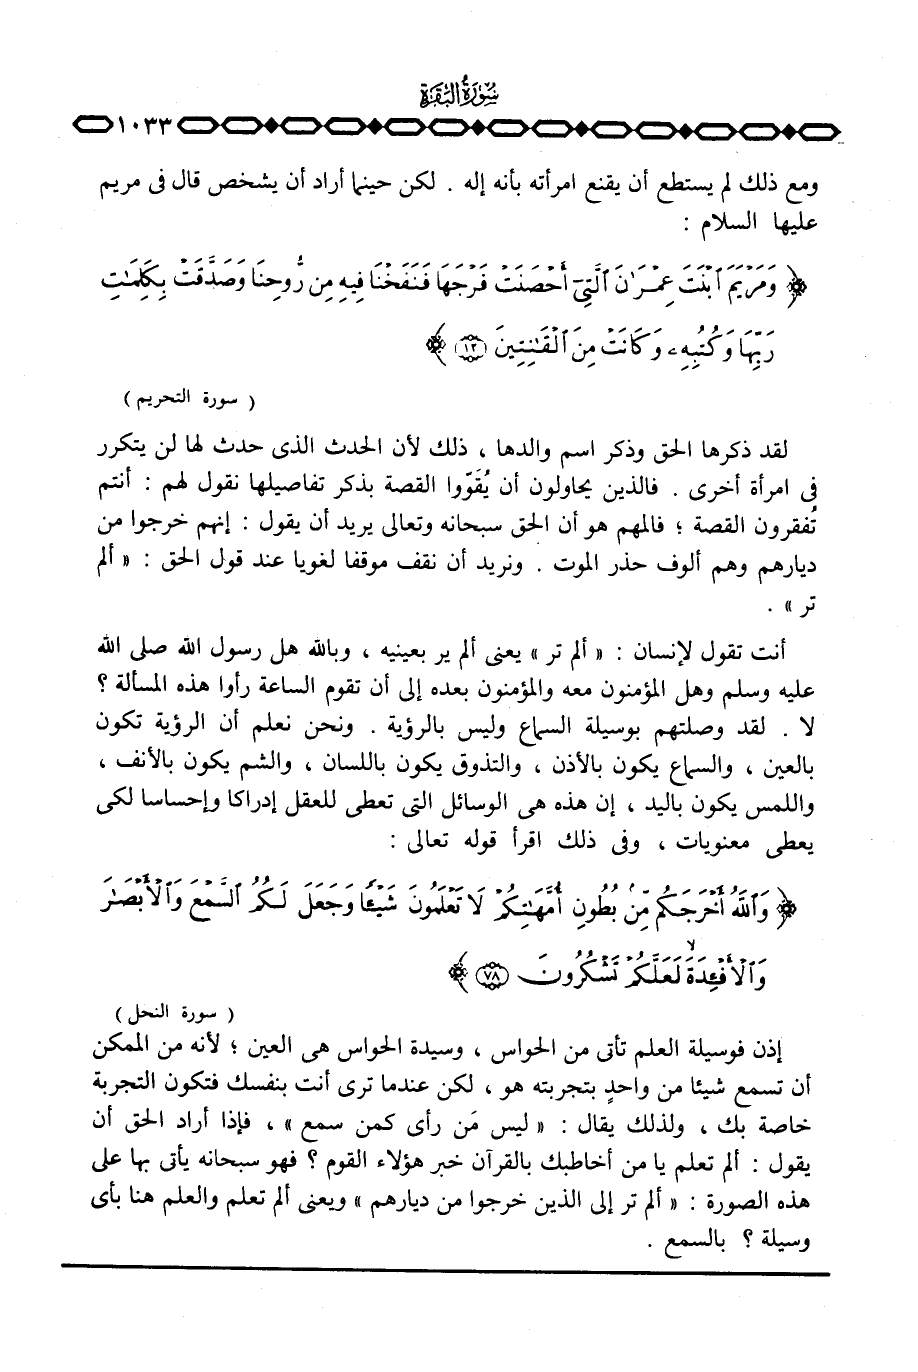 سُورَةُ البَقَرَة
١٠٣٣
ومع ذلك لم يستطع أن يقنع امرأته بأنه إله . لكن حينما أراد أن يشخص قال فى مريم
عليها السلام :
﴿ وَمَرْيَمَ ٱبْنَتَ عِمْرَٰنَ ٱلَّتِىٓ أَحْصَنَتْ فَرْجَهَا فَنَفَخْنَا فِيهِ مِن رُّوحِنَا وَصَدَّقَتْ بِكَلِمَٰتِ
رَبِّهَا وَكُتُبِهِۦ وَكَانَتْ مِنَ ٱلْقَٰنِتِينَ ﴿١٢﴾ ﴾
( سورة التحريم )
لقد ذكرها الحق وذكر اسم والدها ، ذلك لأن الحدث الذى حدث لها لن يتكرر
فى امرأة أخرى . فالذين يحاولون أن يُقَوّوا القصة بذكر تفاصيلها نقول لهم : أنتم
تُفقرون القصة ؛ فالمهم هو أن الحق سبحانه وتعالى يريد أن يقول : إنهم خرجوا من
ديارهم وهم ألوف حذر الموت . ونريد أن نقف موقفا لغويا عند قول الحق : « ألم
تر » .
أنت تقول لإنسان : « ألم تر » يعنى ألم ير بعينيه ، وبالله هل رسول الله صلى الله
عليه وسلم وهل المؤمنون معه والمؤمنون بعده إلى أن تقوم الساعة رأوا هذه المسألة ؟
لا . لقد وصلتهم بوسيلة السماع وليس بالرؤية . ونحن نعلم أن الرؤية تكون
بالعين ، والسماع يكون بالأذن ، والتذوق يكون باللسان ، والشم يكون بالأنف ،
واللمس يكون باليد ، إن هذه هى الوسائل التى تعطى للعقل إدراكا وإحساسا لكى
يعطى معنويات ، وفى ذلك اقرأ قوله تعالى :
﴿ وَٱللَّهُ أَخْرَجَكُم مِّنۢ بُطُونِ أُمَّهَٰتِكُمْ لَا تَعْلَمُونَ شَيْـًٔا وَجَعَلَ لَكُمُ ٱلسَّمْعَ وَٱلْأَبْصَٰرَ
وَٱلْأَفْـِٔدَةَ ۙ لَعَلَّكُمْ تَشْكُرُونَ ﴿٧٨﴾ ﴾
( سورة النحل )
إذن فوسيلة العلم تأتى من الحواس ، وسيدة الحواس هى العين ؛ لأنه من الممكن
أن تسمع شيئا من واحدٍ بتجربته هو ، لكن عندما ترى أنت بنفسك فتكون التجربة
خاصة بك ، ولذلك يقال : « ليس مَن رأى كمن سمع » ، فإذا أراد الحق أن
يقول : ألم تعلم يا من أخاطبك بالقرآن خبر هؤلاء القوم ؟ فهو سبحانه يأتى بها على
هذه الصورة : « ألم تر إلى الذين خرجوا من ديارهم » ويعنى ألم تعلم والعلم هنا بأى
وسيلة ؟ بالسمع .